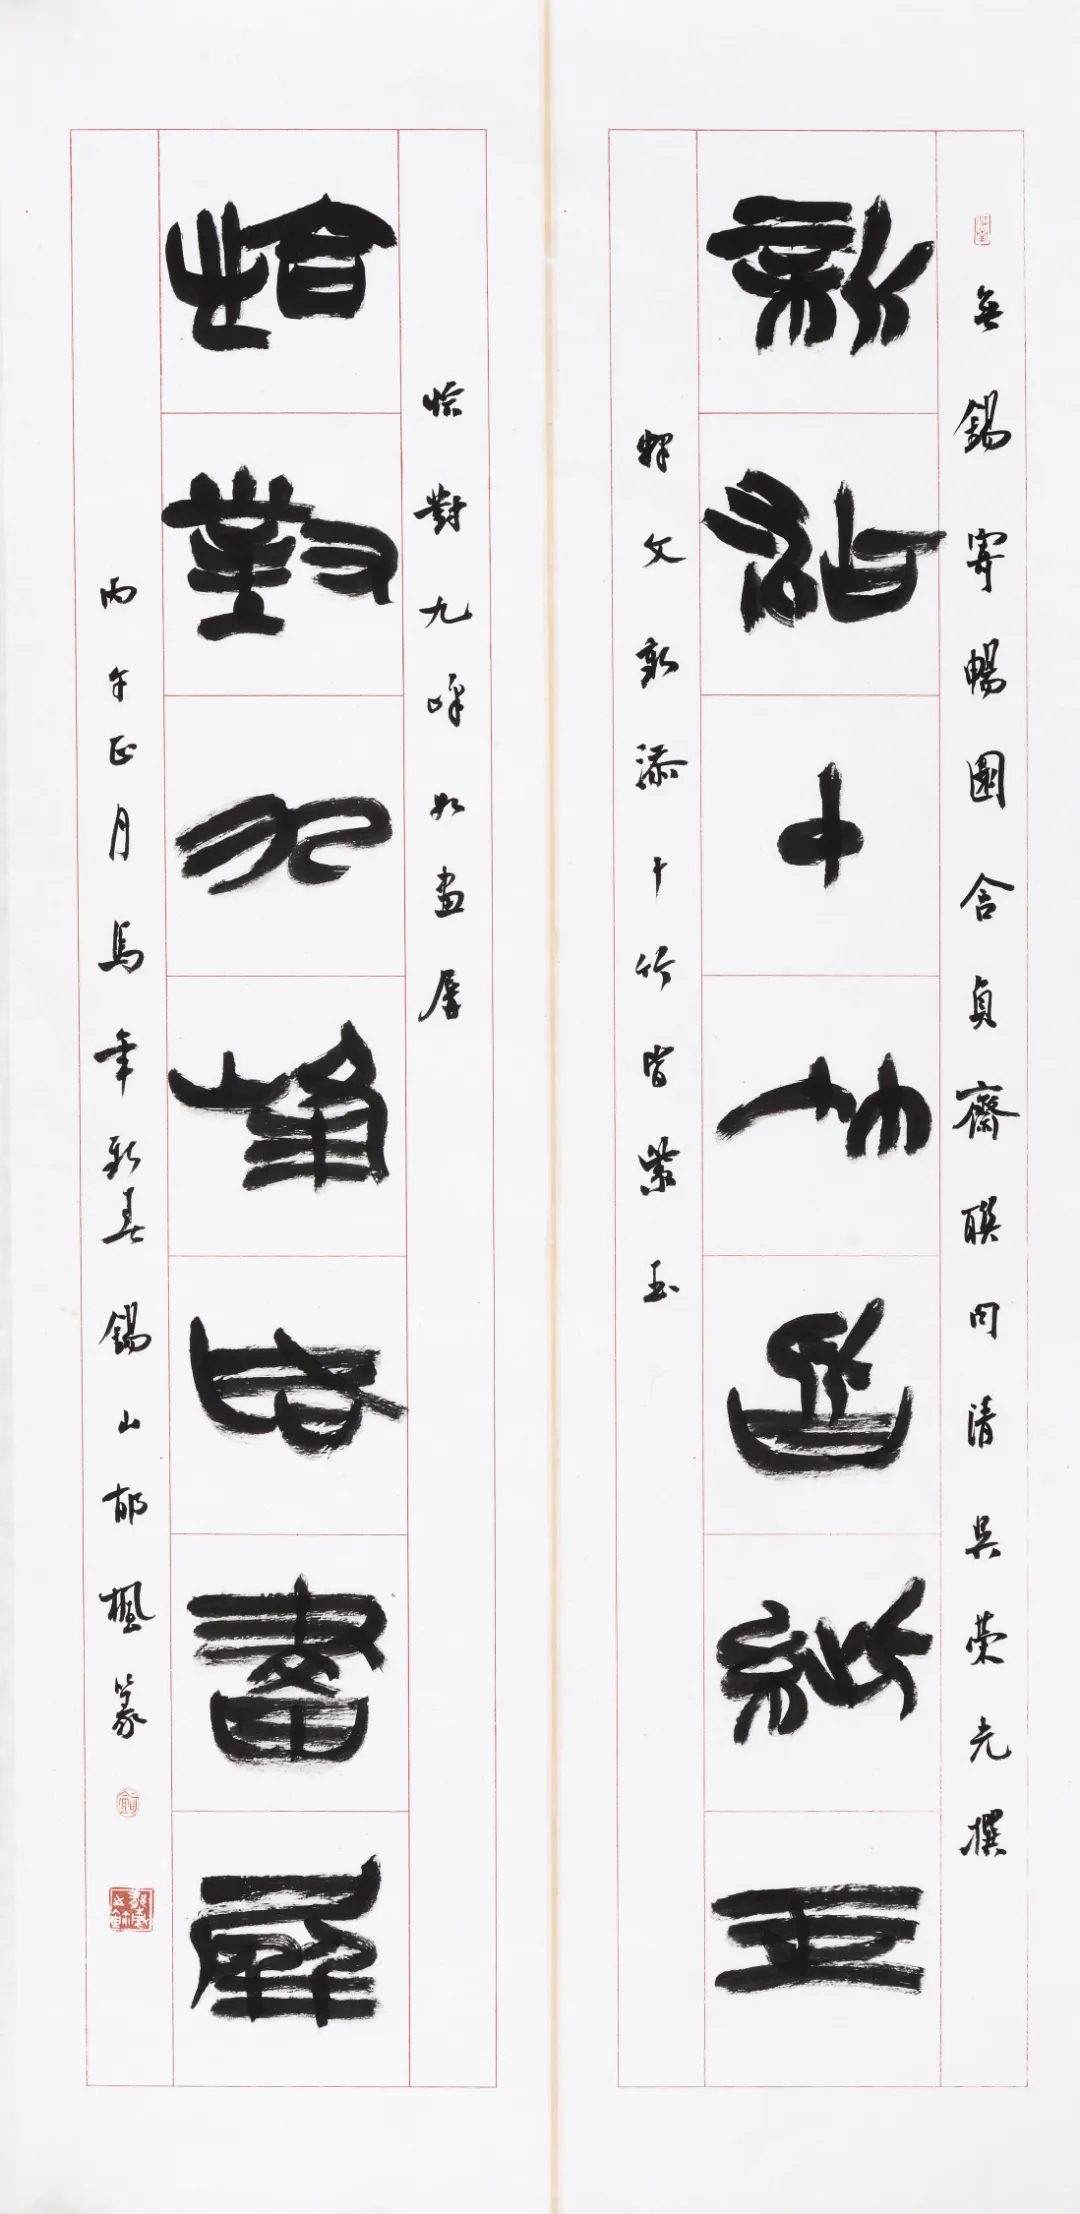 無錫寄暢園含貞齋聯句清吳榮光撰
新添十竹皆紫玉
釋文新添十竹皆紫玉
恰對九峰如畫屏
恰對九峰如畫屏
丙午正月馬年新春錫山郁楓篆